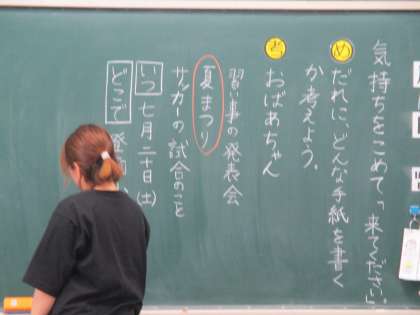 気持ちをこめて、「来てください」。
め だれに、どんな手紙を書く
か考えよう。
考 おばあちゃん
習い事の発表会
夏まつり
サッカーの試合のこと
いつ 七月二十日(土)
どこで